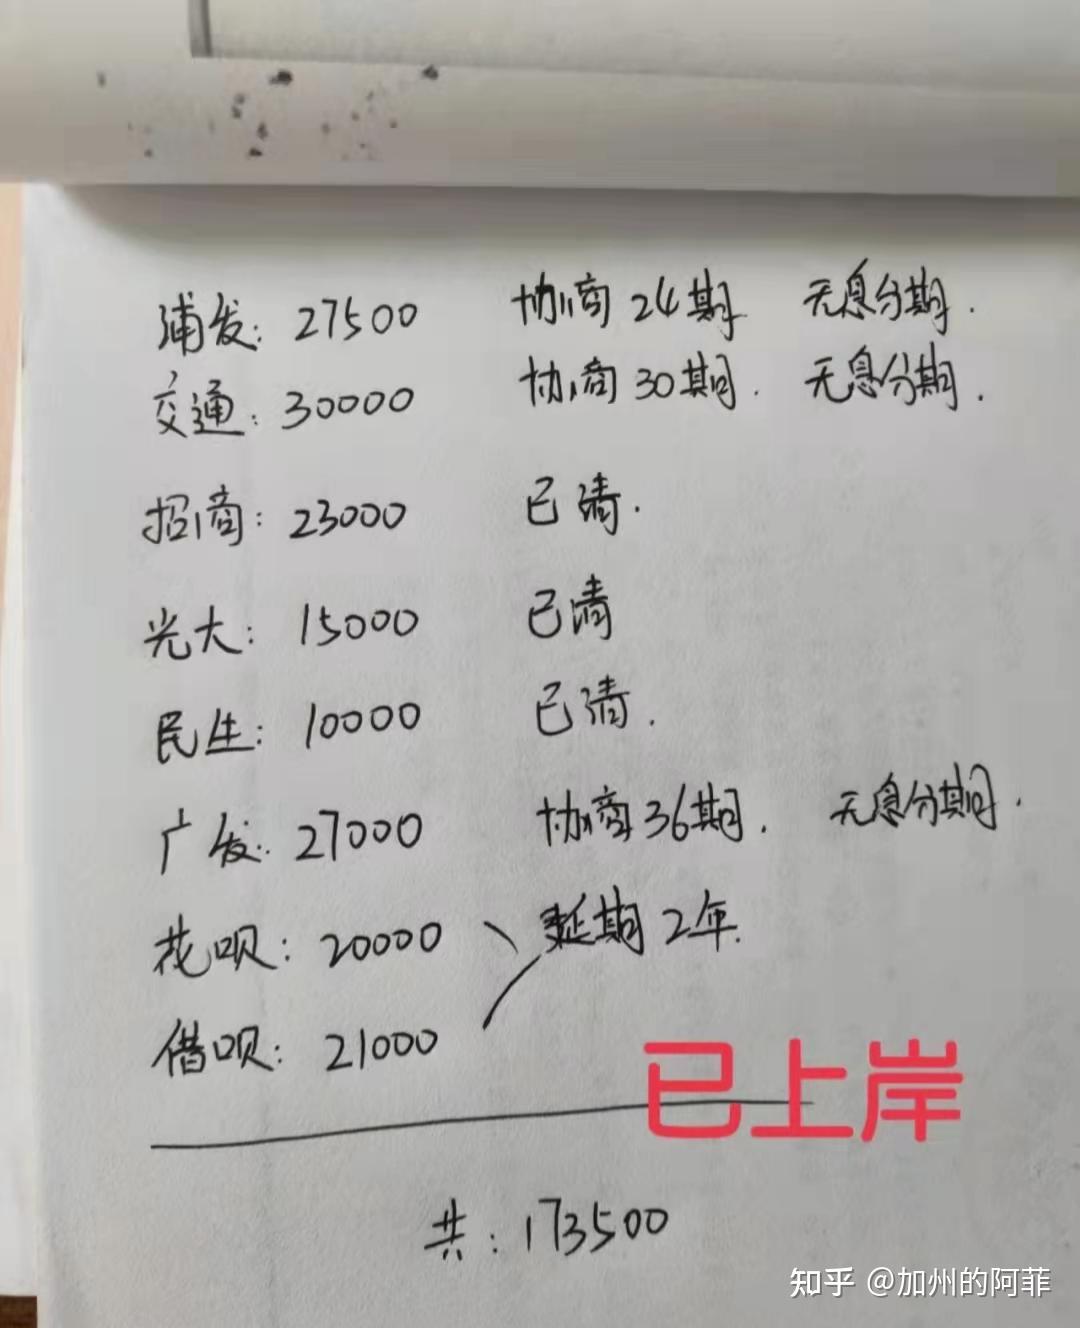 浦发: 27500 协商24期 无息分期.
交通: 30000 协商30期. 无息分期.
招商: 23000 已清.
光大: 15000 已清
民生: 10000 已清.
广发: 27000 协商36期. 无息分期.
花呗: 20000 延期2年.
借呗: 21000
已上岸
共: 173500
知乎 @加州的阿菲